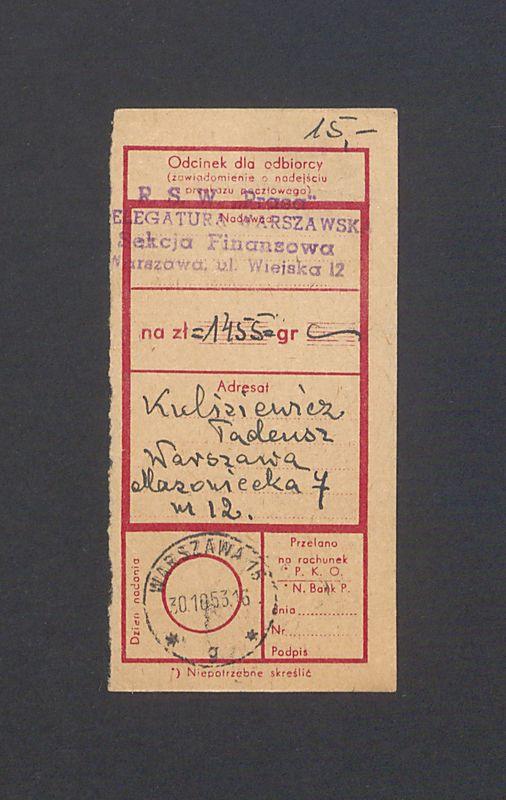 15,-
Odcinek dla odbiorcy
(zawiadomienie o nadejściu
przekazu pocztowego)
R. S. W. „Prasa"
ELEGATURA WARSZAWSK
Nadawca
Sekcja Finansowa
Warszawa, ul. Wiejska 12
na zł =1455= gr
Adresat
Kulisiewicz
Tadeusz
Warszawa
Mazowiecka 7
m 12.
Dzień nadania
WARSZAWA 15
30.10.53.16
g
Przelano
na rachunek
* P. K. O.
* N. Bank P.
dnia
Nr.
Podpis
*) Niepotrzebne skreślić